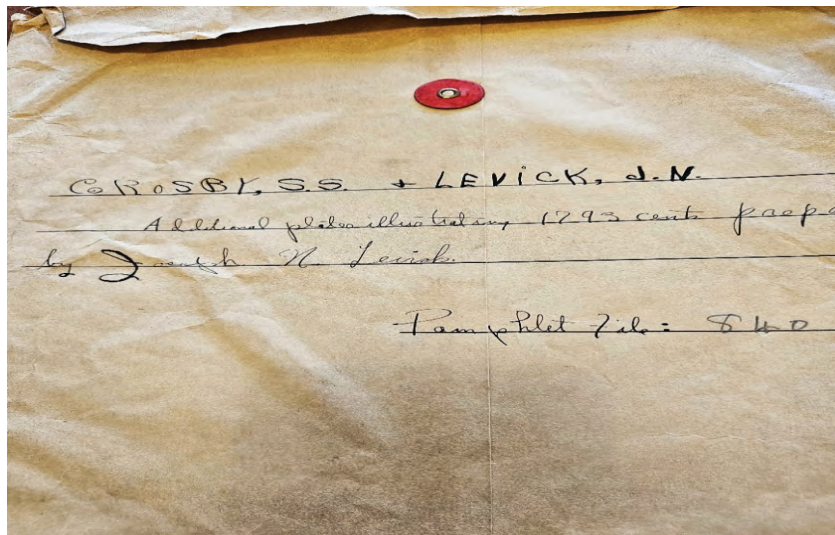 CROSBY, S.S. + LEVICK, J.N.
Additional plates illustrating 1793 cents prep
by Joseph N. Levick.
Pamphlet File: 840